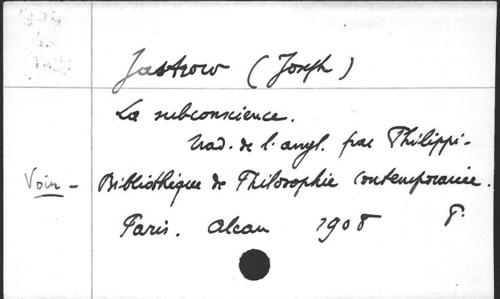 Jastrow (Joseph)
La subconscience.
Trad. de l'angl. par Philippi-
Voir - Bibliothèque de Philosophie Contemporaine.
Paris. Alcan 1908 P.